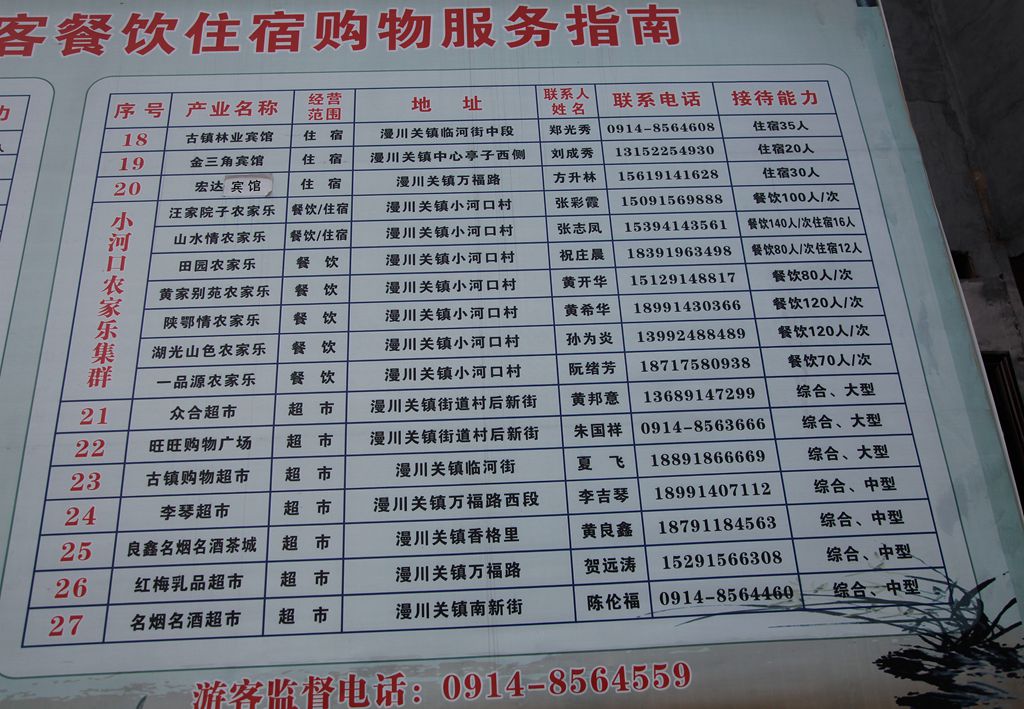 客餐饮住宿购物服务指南
序号 产业名称 经营范围 地 址 联系人姓名 联系电话 接待能力
18 古镇林业宾馆 住 宿 漫川关镇临河街中段 郑光秀 0914-8564608 住宿35人
19 金三角宾馆 住 宿 漫川关镇中心亭子西侧 刘成秀 13152254930 住宿20人
20 宏达宾馆 住 宿 漫川关镇万福路 方升林 15619141628 住宿30人
小河口农家乐集群
汪家院子农家乐 餐饮/住宿 漫川关镇小河口村 张彩霞 15091569888 餐饮100人/次
山水情农家乐 餐饮/住宿 漫川关镇小河口村 张志凤 15394143561 餐饮140人/次住宿16人
田园农家乐 餐 饮 漫川关镇小河口村 祝庄晨 18391963498 餐饮80人/次住宿12人
黄家别苑农家乐 餐 饮 漫川关镇小河口村 黄开华 15129148817 餐饮80人/次
陕鄂情农家乐 餐 饮 漫川关镇小河口村 黄希华 18991430366 餐饮120人/次
湖光山色农家乐 餐 饮 漫川关镇小河口村 孙为炎 13992488489 餐饮120人/次
一品源农家乐 餐 饮 漫川关镇小河口村 阮绪芳 18717580938 餐饮70人/次
21 众合超市 超 市 漫川关镇街道村后新街 黄邦意 13689147299 综合、大型
22 旺旺购物广场 超 市 漫川关镇街道村后新街 朱国祥 0914-8563666 综合、大型
23 古镇购物超市 超 市 漫川关镇临河街 夏 飞 18891866669 综合、大型
24 李琴超市 超 市 漫川关镇万福路西段 李吉琴 18991407112 综合、中型
25 良鑫名烟名酒茶城 超 市 漫川关镇香格里 黄良鑫 18791184563 综合、中型
26 红梅乳品超市 超 市 漫川关镇万福路 贺远涛 15291566308 综合、中型
27 名烟名酒超市 超 市 漫川关镇南新街 陈伦福 0914-8564460 综合、中型
游客监督电话：0914-8564559